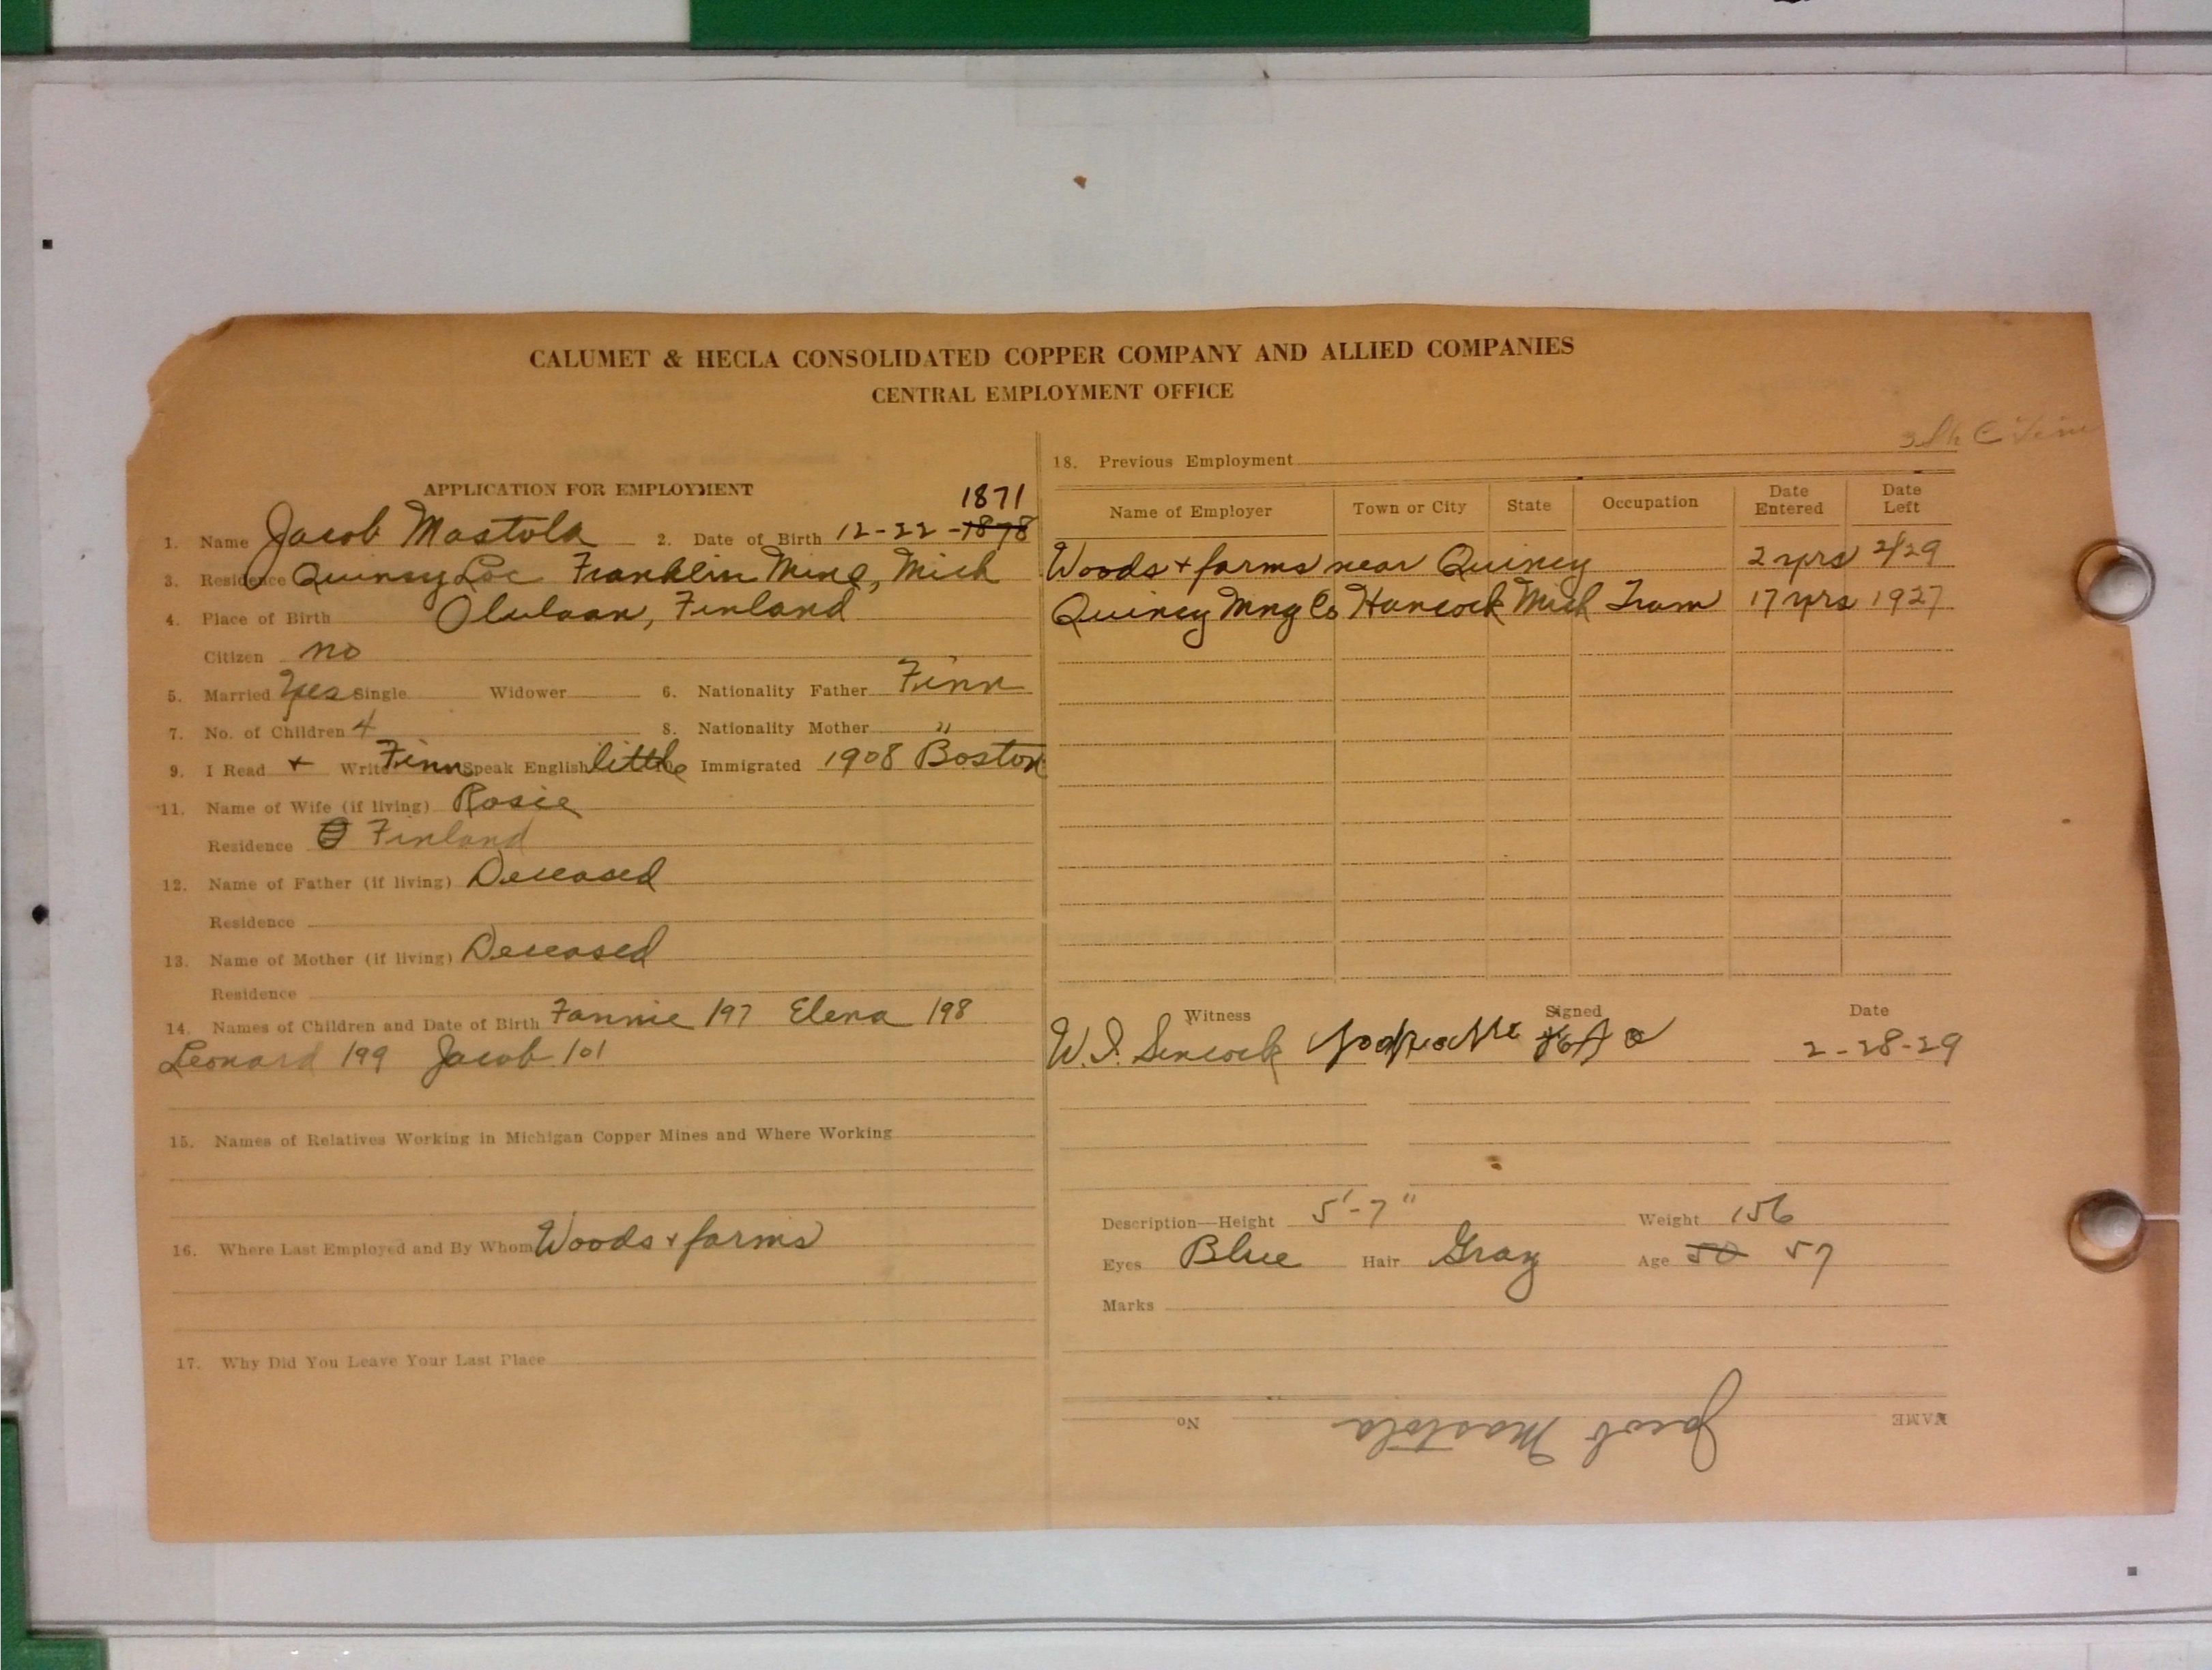 CALUMET & HECLA CONSOLIDATED COPPER COMPANY AND ALLIED COMPANIES
CENTRAL EMPLOYMENT OFFICE
APPLICATION FOR EMPLOYMENT
1871
1. Name Jacob Mastola 2. Date of Birth 12-22-1878
3. Residence Quincy Loc Franklin Mine, Mich
4. Place of Birth Olulaan, Finland
Citizen no
5. Married Yes Single Widower 6. Nationality Father Finn
7. No. of Children 4 8. Nationality Mother "
9. I Read + Write Finn Speak English little Immigrated 1908 Boston
11. Name of Wife (if living) Rosie
Residence Finland
12. Name of Father (if living) Deceased
Residence
13. Name of Mother (if living) Deceased
Residence
14. Names of Children and Date of Birth Fannie 197 Elena 198
Leonard 199 Jacob 101
15. Names of Relatives Working in Michigan Copper Mines and Where Working
16. Where Last Employed and By Whom Woods + farms
17. Why Did You Leave Your Last Place
18. Previous Employment
Name of Employer Town or City State Occupation Date Entered Date Left
Woods + farms near Quincy 2 yrs 2/29
Quincy Mng Co Hancock Mich Tram 17 yrs 1927
Witness Signed Date
W.J. 2-28-29
Description—Height 5'-7" Weight 156
Eyes Blue Hair Gray Age 50 57
Marks
NAME Jacob Mastola No